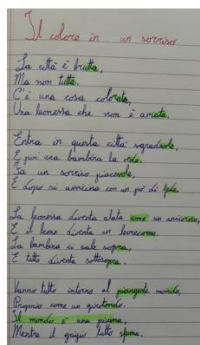 Il colore in un sorriso
La città è brutta,
Ma non tutta.
C'è una cosa colorata,
Una leonessa che non è amata.
Entra in questa città sgradevole,
E poi una bambina la vede.
Fa un sorriso piacevole,
E dopo si avvicina con un po' di fede.
La leonessa diventa alata come un unicorno,
E il leone diventa un
La bambina ci sale sopra,
E tutto diventa sottosopra.
Vanno tutte intorno al piangente mondo,
Proprio come un girotondo.
Il mondo è una
Mentre il grigio tutto